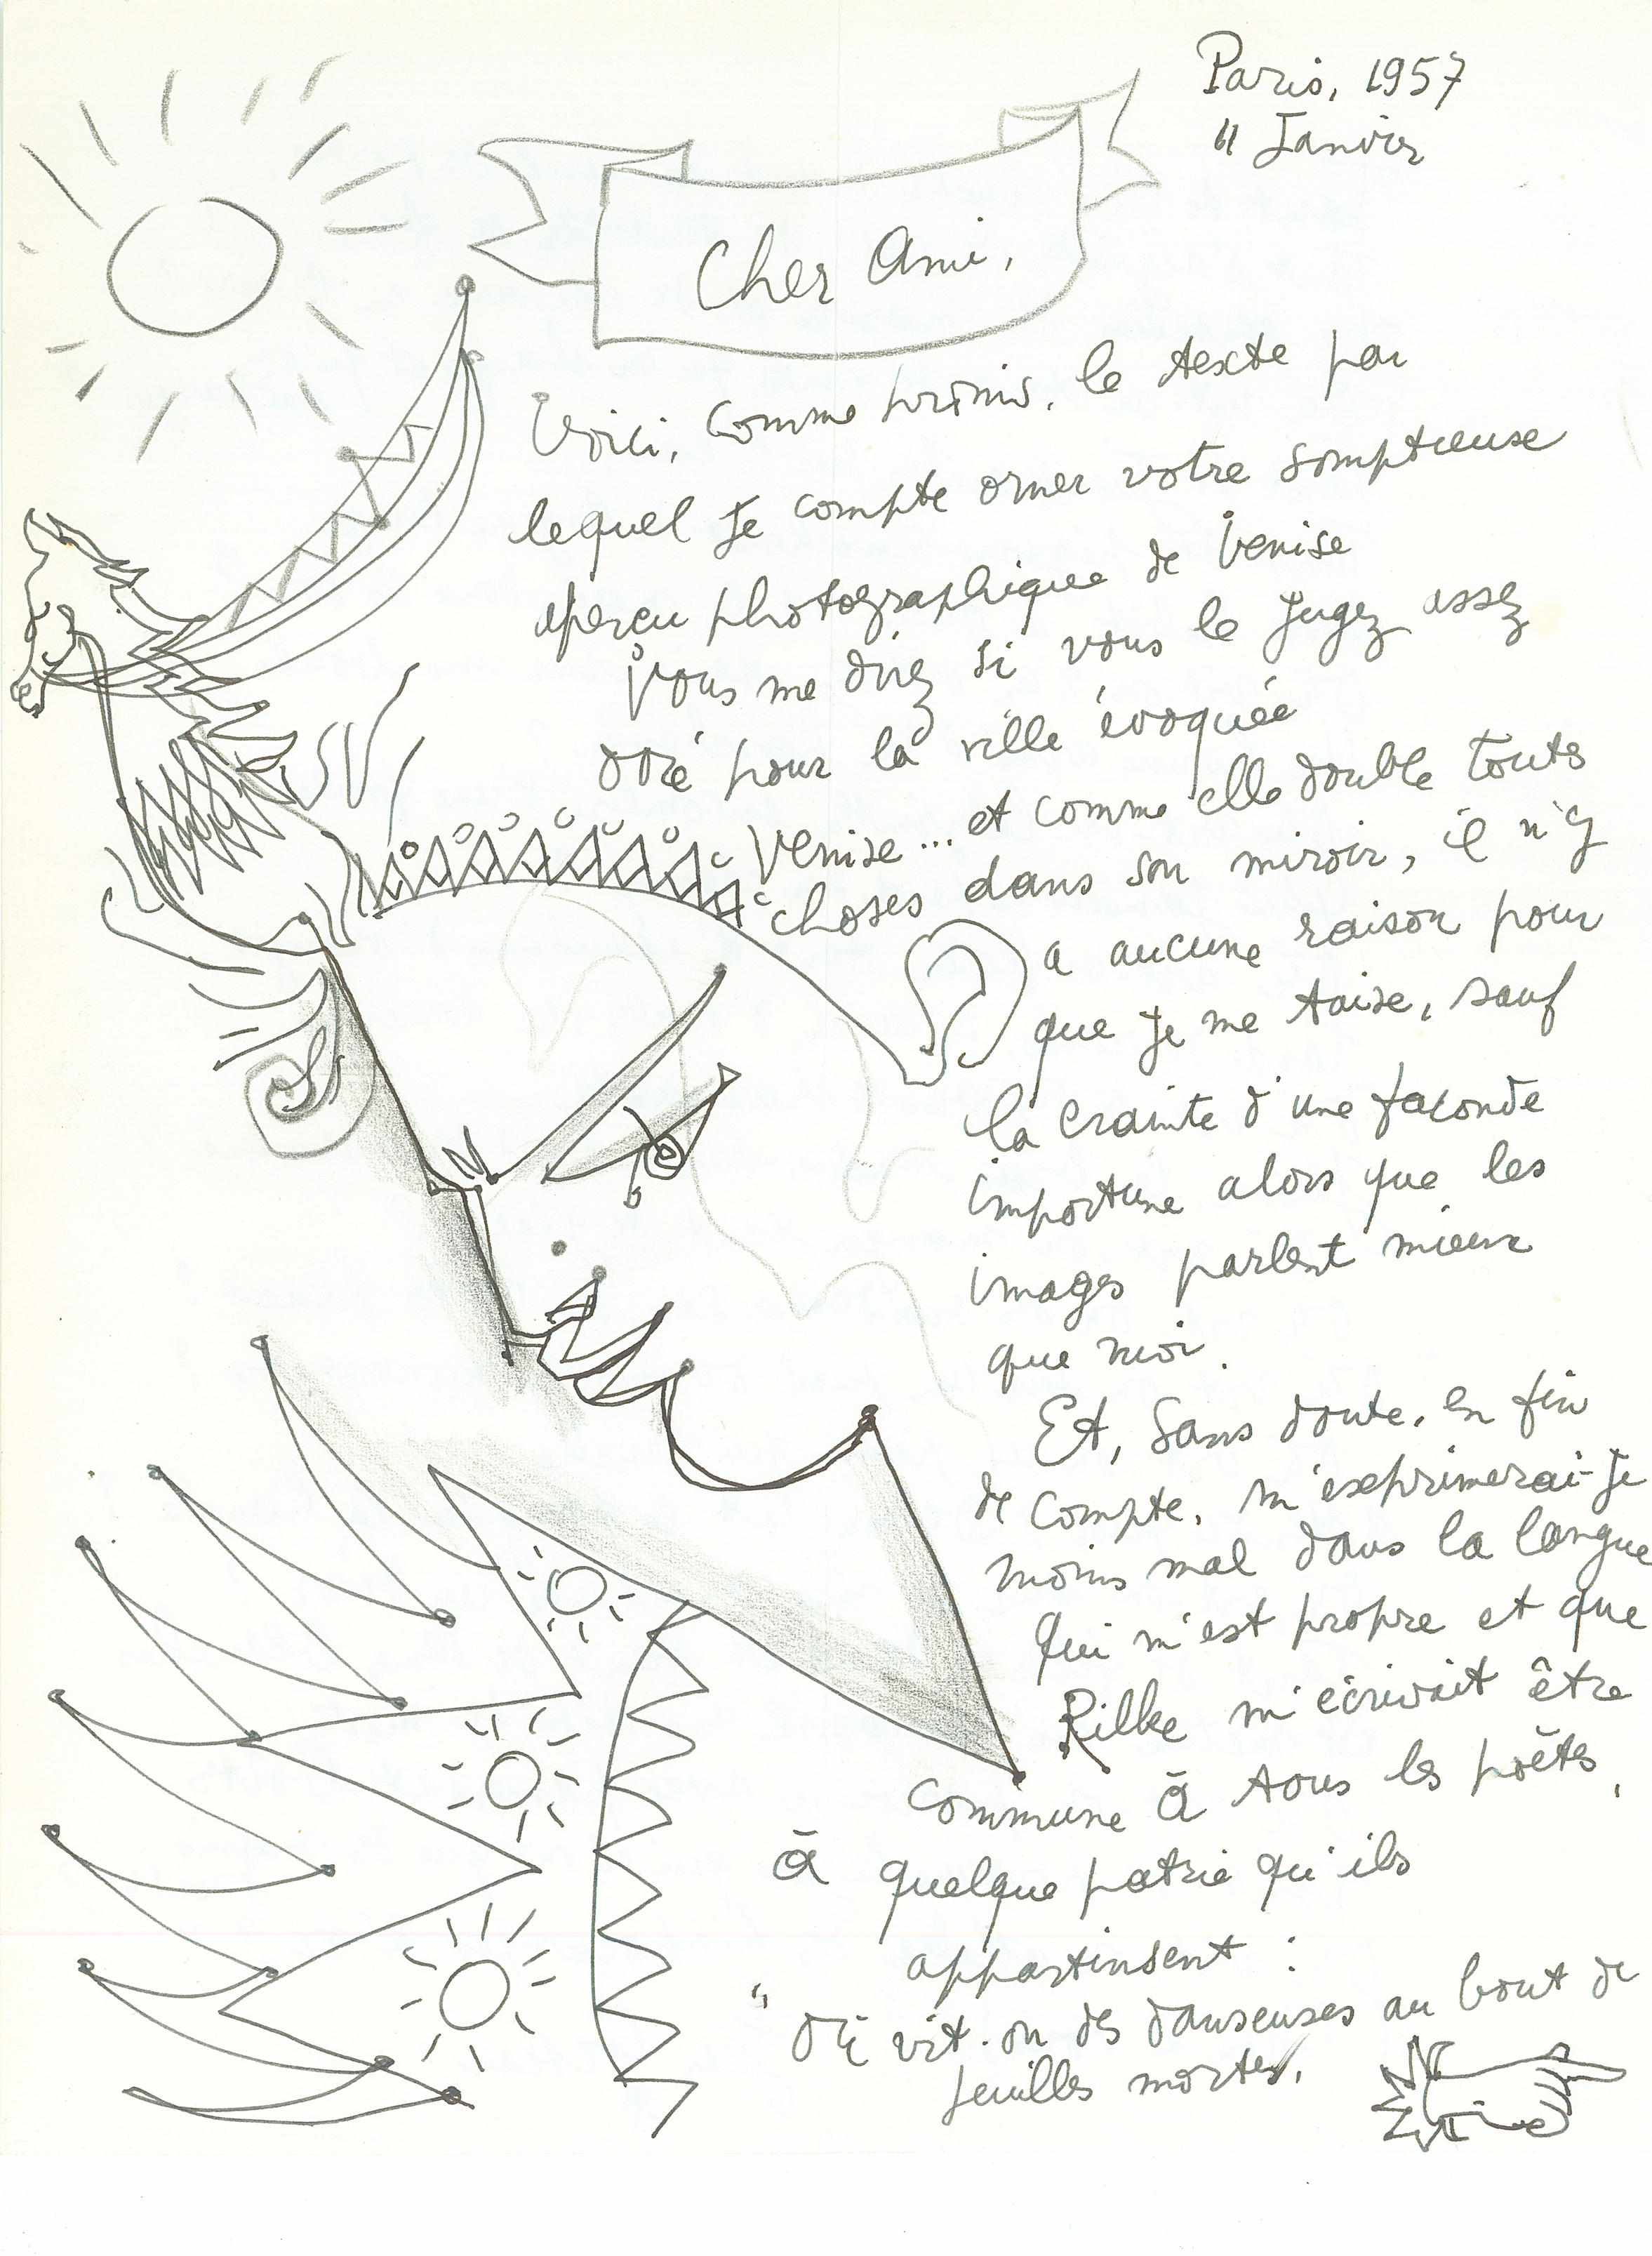 Paris, 1957
11 Janvier
Cher Ami,
Voici, comme promis, le texte par
lequel je compte orner votre somptueuse
aperçu photographique de Venise
Vous me direz si vous le jugez assez
doré pour la ville évoquée
Venise... et comme elle double toutes
choses dans son miroir, il n'y
a aucune raison pour
que je me taise, sauf
la crainte d'une faconde
importune alors que les
images parlent mieux
que moi.
Et, sans doute, en fin
de compte, m'exprimerai-je
moins mal dans la langue
qui m'est propre et que
Rilke m'écrivait être
commune à tous les poètes,
à quelque patrie qu'ils
appartinsent :
" Où vit-on des danseuses au bout de
feuilles mortes.